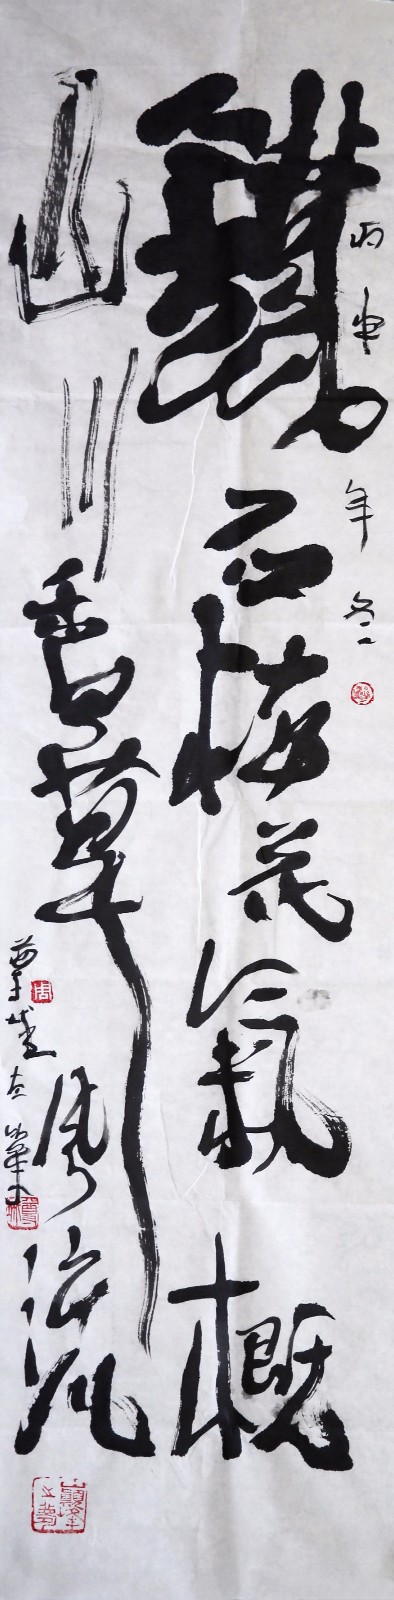 丙申年冬
鐵石梅花氣概
山川香草風流
左筆